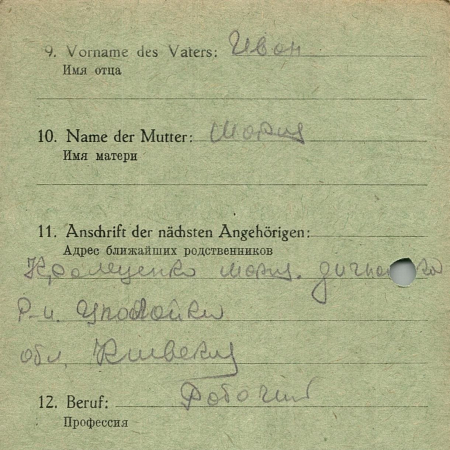 9. Vorname des Vaters: Иван
Имя отца
10. Name der Mutter: Мария
Имя матери
11. Anschrift der nächsten Angehörigen:
Адрес ближайших родственников
обл. Киевския
12. Beruf: Рабочий
Профессия